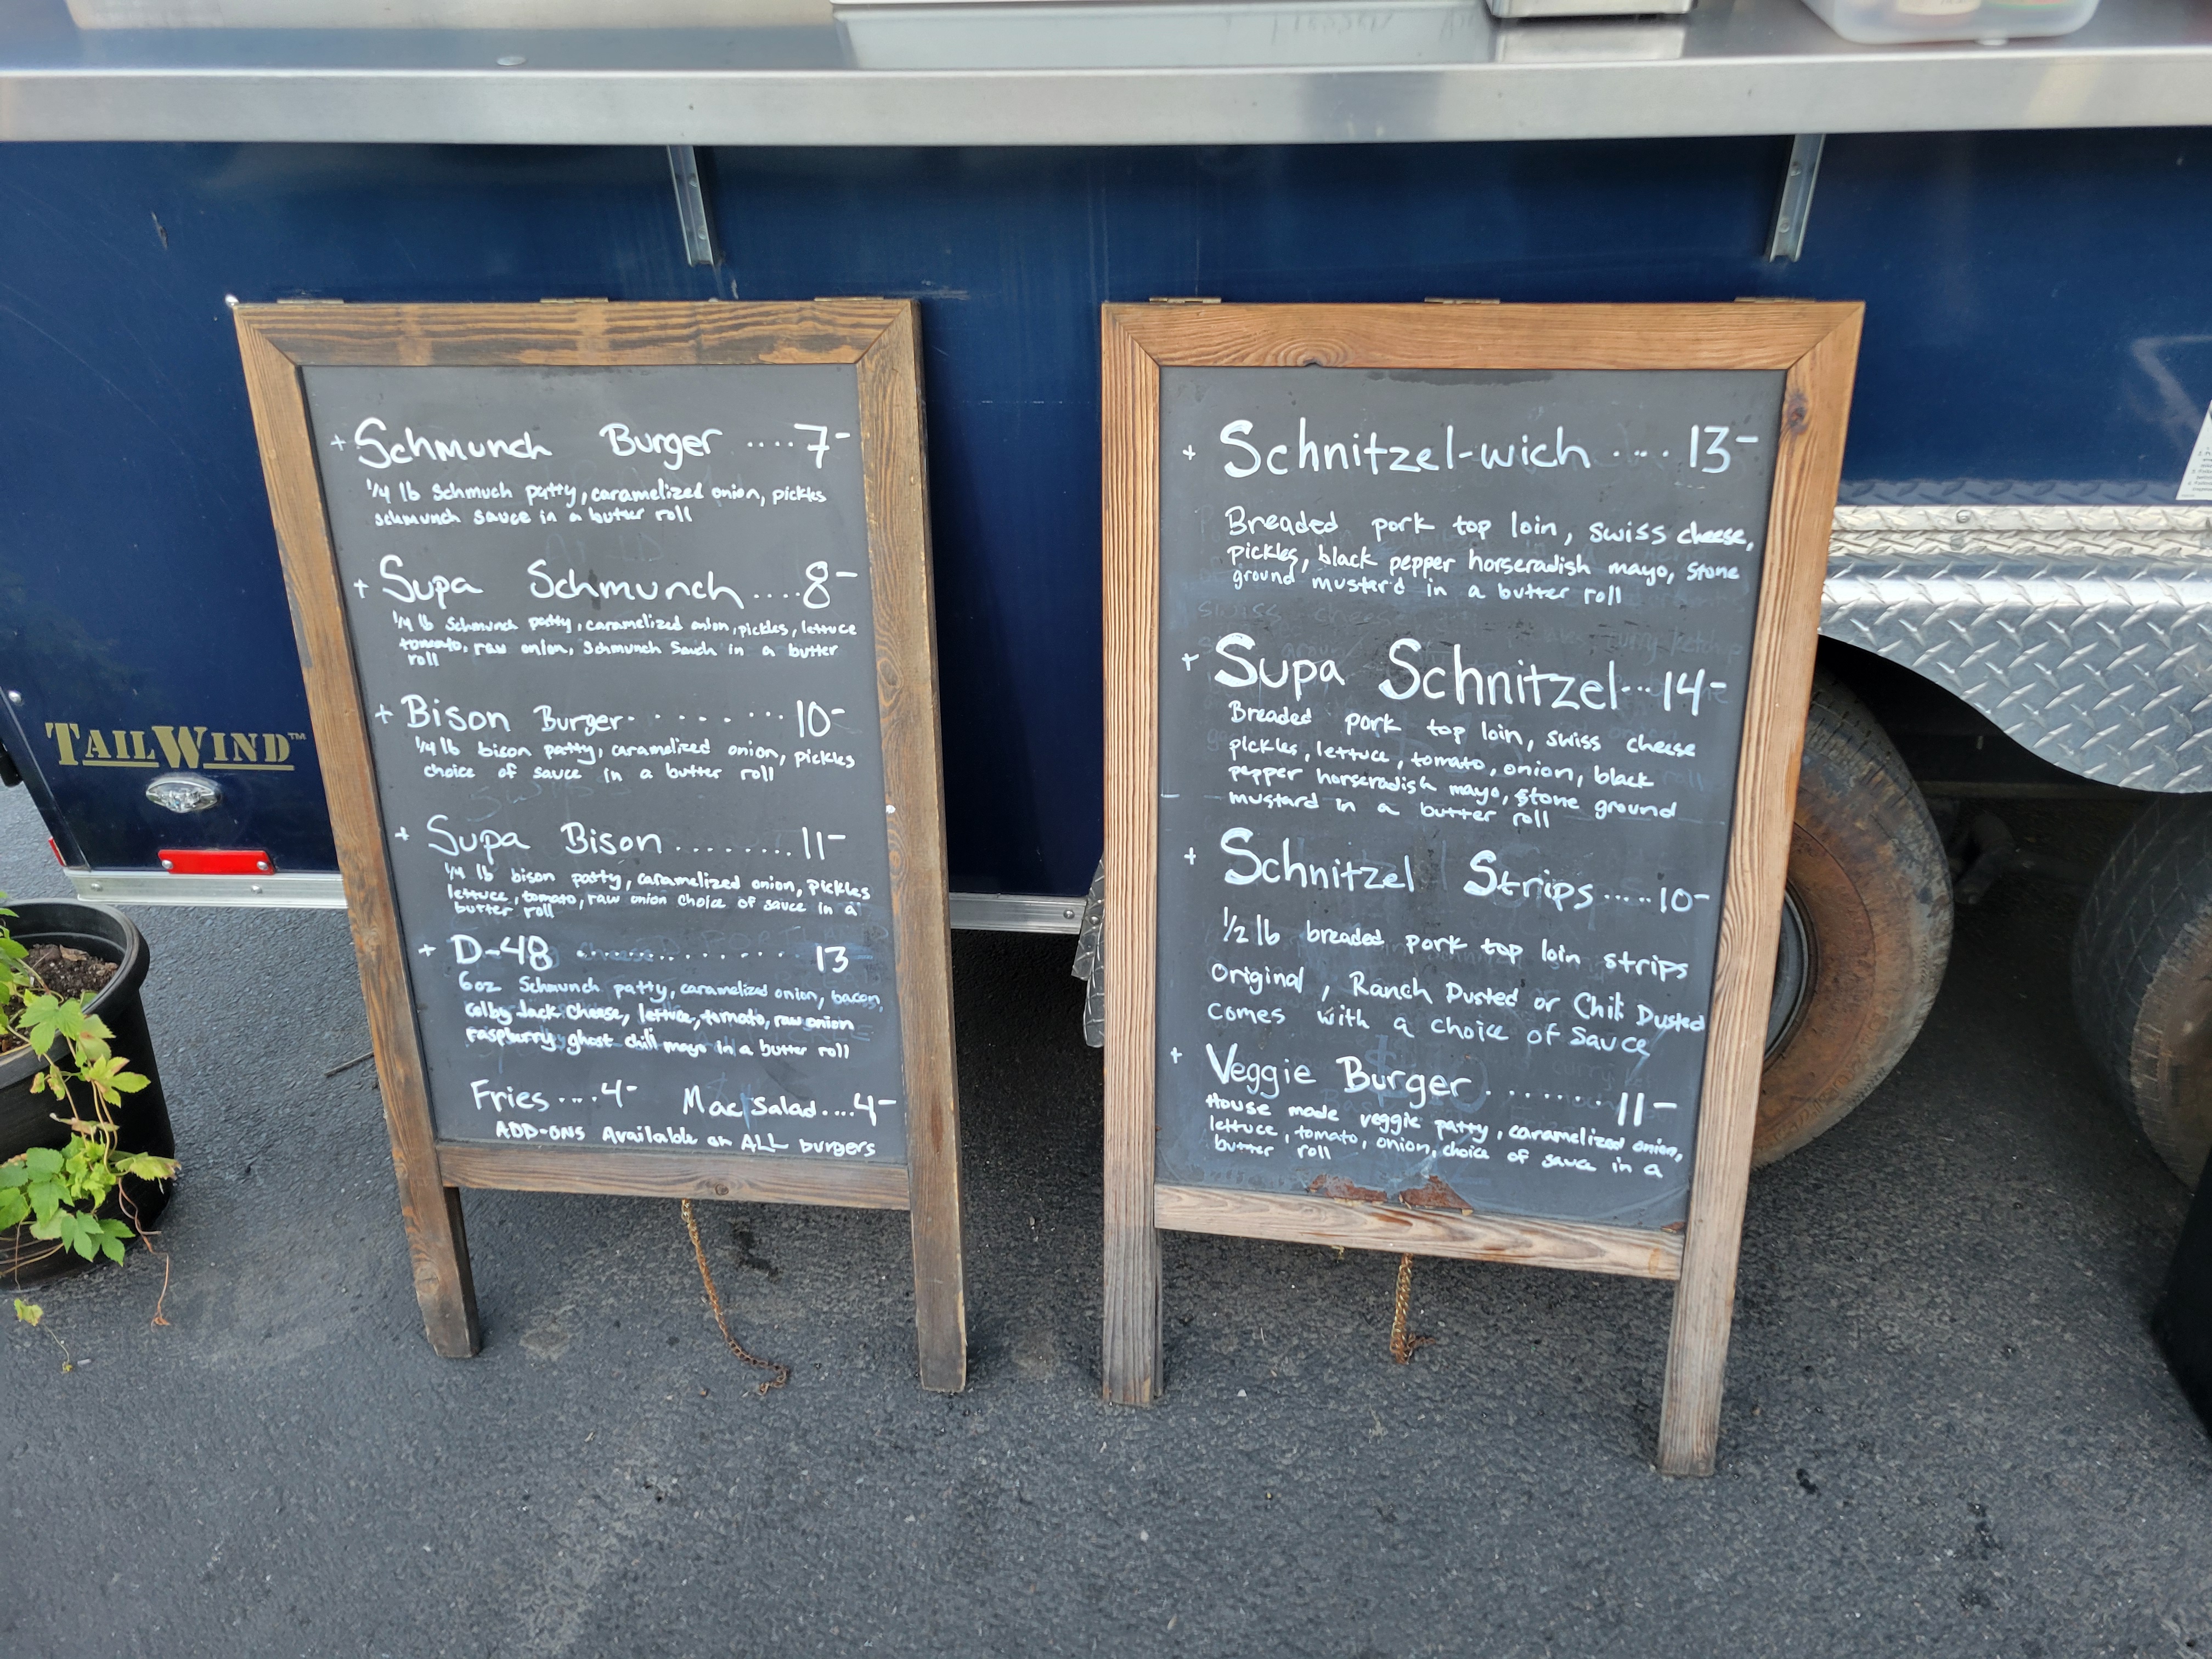 TAILWIND™
+ Schmunch Burger ....7-
1/4 lb schmuch patty, caramelized onion, pickles
schmunch sauce in a butter roll
+ Supa Schmunch ....8-
1/4 lb Schmunch patty, caramelized onion, pickles, lettuce
tomato, raw onion, Schmunch Sauch in a butter
roll
+ Bison Burger........10-
1/4 lb bison patty, caramelized onion, pickles
choice of sauce in a butter roll
+ Supa Bison.........11-
1/4 lb bison patty, caramelized onion, pickles
lettuce, tomato, raw onion choice of sauce in a
butter roll
+ D-48 ............ 13
6oz Schmunch patty, caramelized onion, bacon,
colby Jack Cheese, lettuce, tomato, raw onion
raspburry ghost chili mayo in a butter roll
Fries....4- Mac Salad....4-
ADD-ONS Available on ALL burgers
+ Schnitzel-wich .... 13-
Breaded pork top loin, swiss cheese,
pickles, black pepper horseradish mayo, stone
ground mustard in a butter roll
+ Supa Schnitzel...14-
Breaded pork top loin, swiss cheese
pickles, lettuce, tomato, onion, black
pepper horseradish mayo, stone ground
mustard in a butter roll
+ Schnitzel Strips.....10-
1/2 lb breaded pork top loin strips
Original, Ranch Dusted or Chili Dusted
comes with a choice of Sauce
+ Veggie Burger........11-
House made veggie patty, caramelized onion,
lettuce, tomato, onion, choice of sauce in a
butter roll